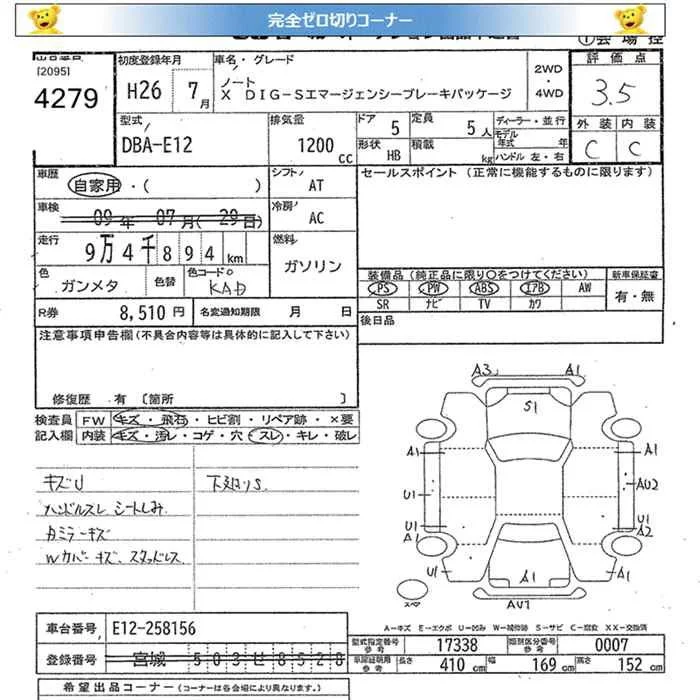 完全ゼロ切りコーナー
[2095]
4279
初度登録年月
H26 7月
車名・グレード
ノート
X DIG-Sエマージェンシーブレーキパッケージ
2WD
・
4WD
評価点
3.5
外装 内装
C C
型式
DBA-E12
排気量
1200 cc
ドア 5
定員 5人
形状 HB
積載 kg
ディーラー・並行
モデル年式 年
ハンドル 左・右
車歴
自家用・( )
シフト AT
セールスポイント(正常に機能するものに限ります)
車検
09年 07月(29日)
冷房 AC
走行
9万4千894km
燃料
ガソリン
色
ガンメタ
色替
色コードNo
KAD
装備品(純正品に限り○をつけてください)
新車保証書
PS PW ABS エアB AW
SR ナビ TV カワ
有・無
R券 8,510円
名変通知期限 月 日
後日品
注意事項申告欄(不具合内容等は具体的に記入して下さい)
修復歴 有 〔箇所 〕
検査員 FW キズ・飛石・ヒビ割・リペア跡・×要
記入欄 内装 キズ・汚レ・コゲ・穴・スレ・キレ・破レ
キズU
下廻りS
ハンドルスレ シートしみ
カミラーキズ
Wカバーキズ、スタッドレス
A3 A1
S1
A1 A1
U1 AU2
U1 U1
A1 A2
U1 A1 A1
スペア AU1
A-キズ E-エクボ U-凹ミ W-補修跡 S-サビ C-腐食 XX-交換済
車台番号 E12-258156
登録番号 宮城 503せ8528
型式指定番号参考 17338 類別区分番号参考 0007
車庫証明用参考 長さ 410cm 幅 169cm 高さ 152cm
希望出品コーナー(コーナーは各会場により異なります。)